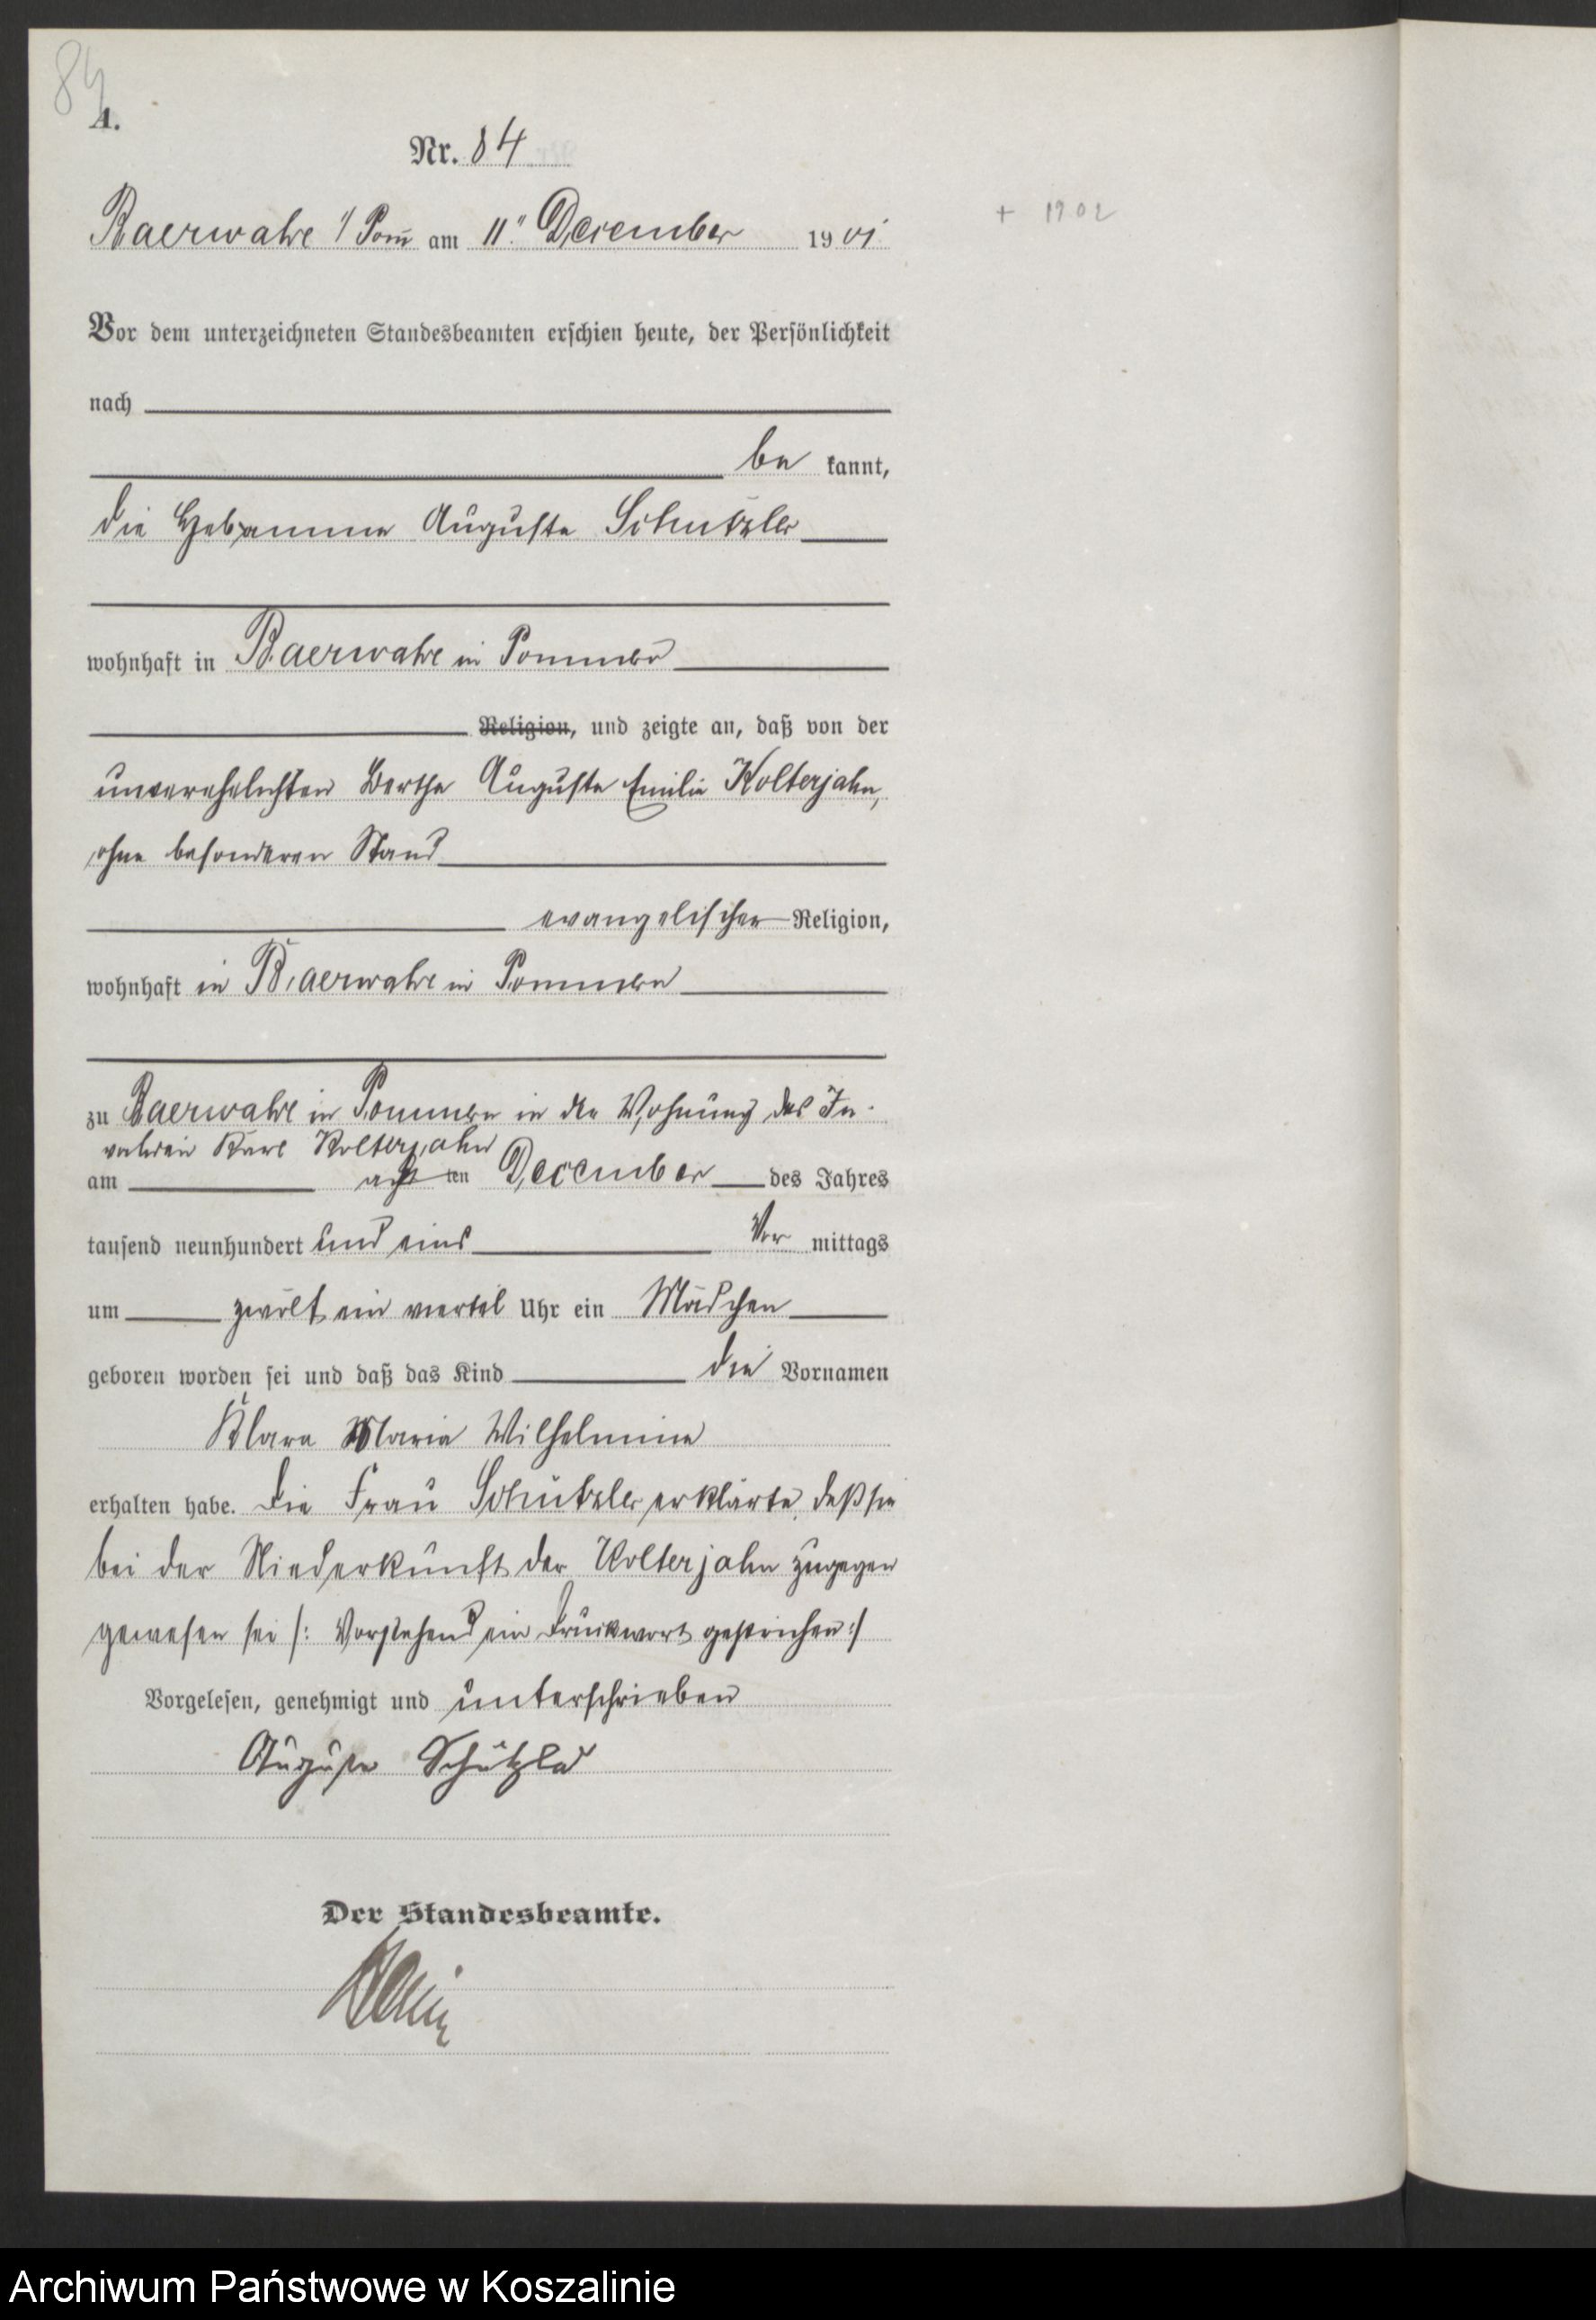 84
A.
Nr. 84
Baerwalde i/ Pom̅ am 11ten December 1901
+ 1902
Vor dem unterzeichneten Standesbeamten erschien heute, der Persönlichkeit
nach
be kannt,
die Hebamme Auguste Schützler
wohnhaft in Baerwalde in Pommern
Religion, und zeigte an, daß von der
unverehelichten Bertha Auguste Emilie Kolterjahn,
ohne besonderen Stand
evangelischer Religion,
wohnhaft in Baerwalde in Pommern
zu Baerwalde in Pommern in der Wohnung des In-
validen Karl Kolterjahn
am acht ten December des Jahres
tausend neunhundert und eins Vor mittags
um zwölf ein viertel Uhr ein Mädchen
geboren worden sei und daß das Kind die Vornamen
Klara Maria Wilhelmine
erhalten habe. Die Frau Schützler erklärte, daß sie
bei der Niederkunft der Kolterjahn zugegen
gewesen sei /: Vorstehend ein Druckwort gestrichen :/
Vorgelesen, genehmigt und unterschrieben
Auguste Schützler
Der Standesbeamte.
Archiwum Państwowe w Koszalinie